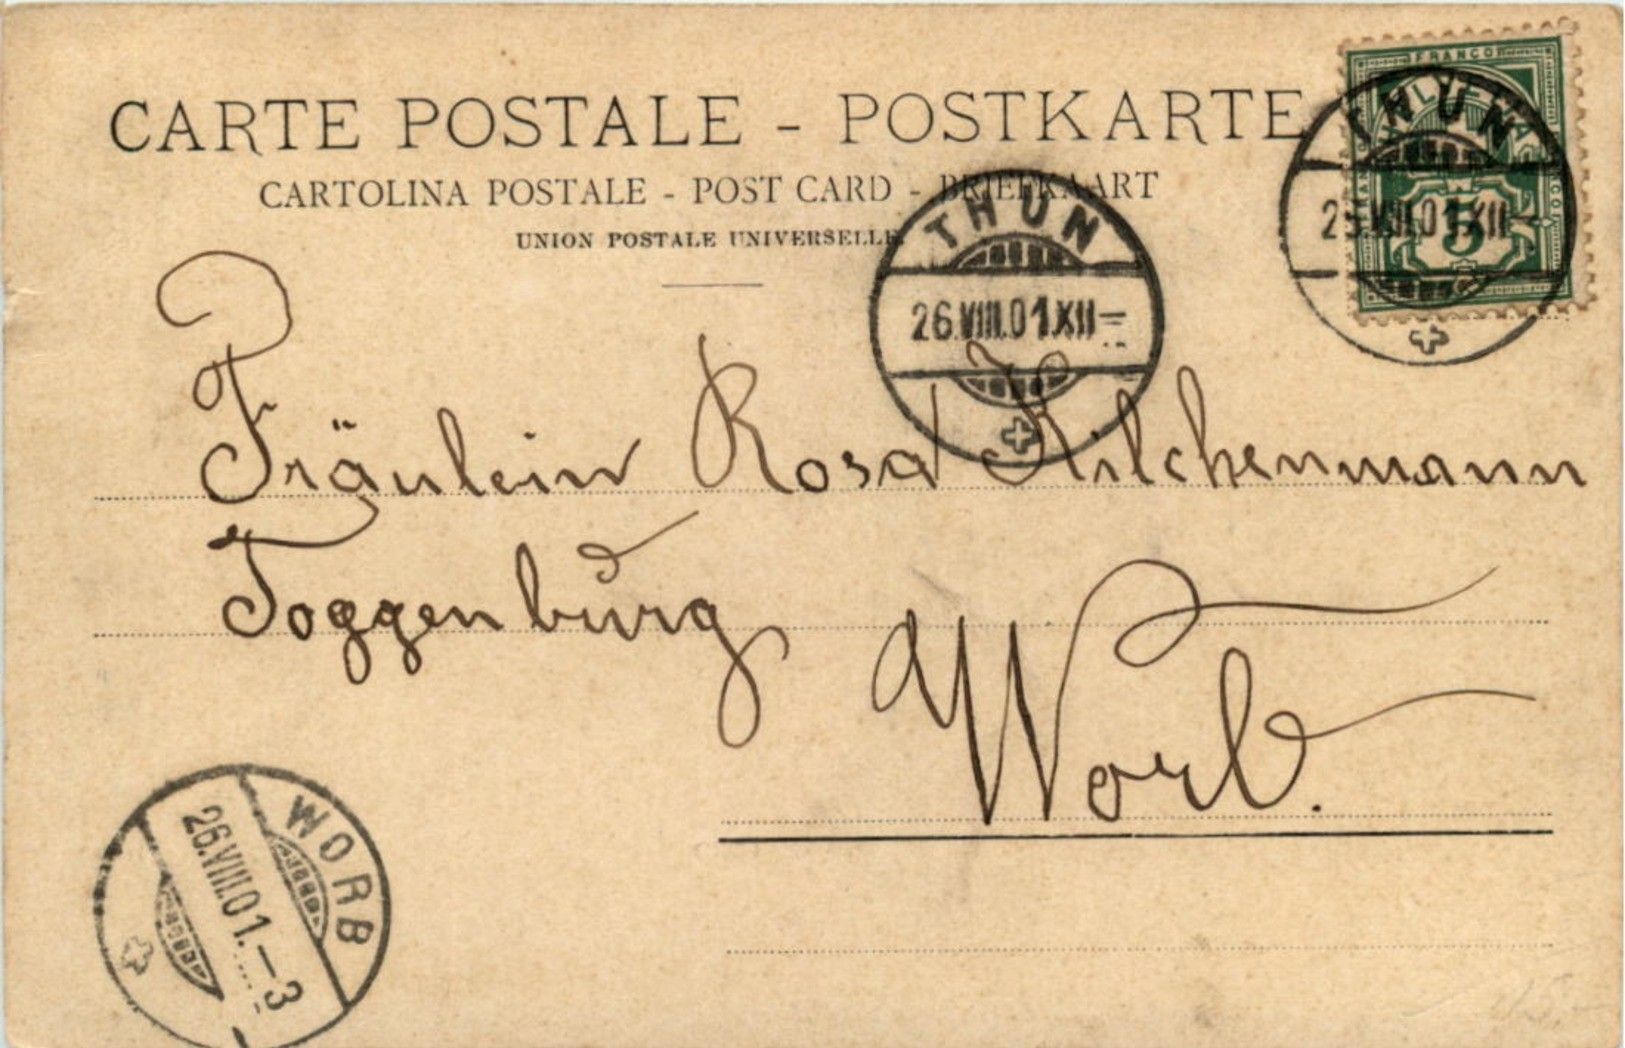 CARTE POSTALE - POSTKARTE
CARTOLINA POSTALE - POST CARD - BRIEFKAART
UNION POSTALE UNIVERSELLE
FRANCO
HELVETIA
FRANCO
FRANCO
5
THUN
26.VIII.01.XII-
THUN
26.VIII.01.XII-
Fräulein Rosa Kilchenmann
Toggenburg
Worb.
WORB
26.VIII.01.-3